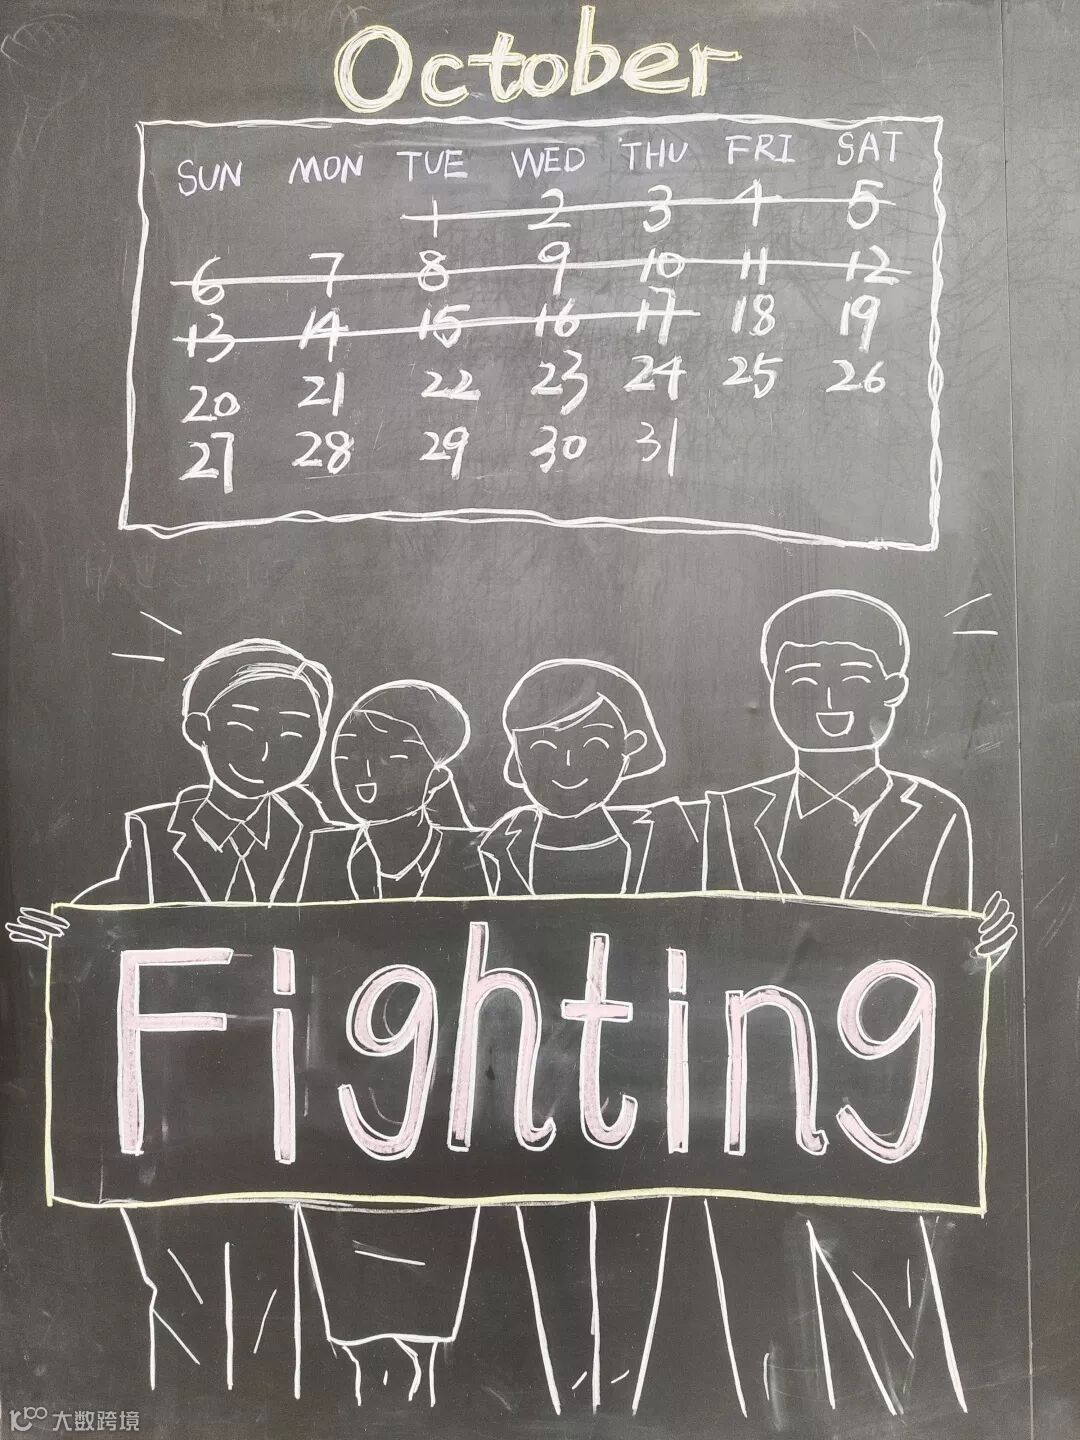 October
SUN MON TUE WED THU FRI SAT
1 2 3 4 5
6 7 8 9 10 11 12
13 14 15 16 17 18 19
20 21 22 23 24 25 26
27 28 29 30 31
Fighting
大数跨境